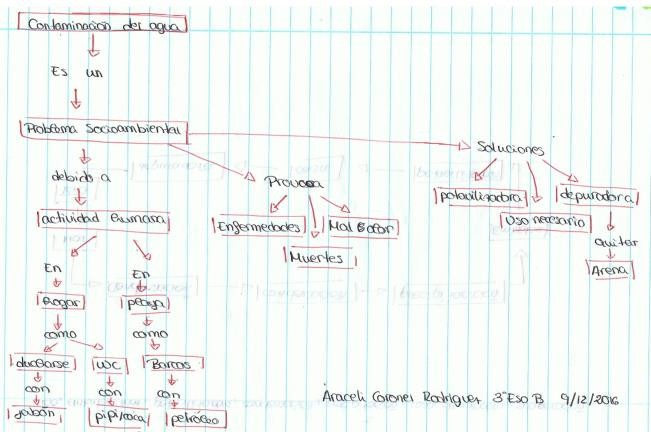 Contaminación del agua
Es un
Problema Socioambiental
debido a
actividad humana
En
En
hogar
playa
como
como
ducharse
WC
Barcos
con
con
con
jabón
pipi/caca
petróleo
Provoca
Enfermedades
Mal olor
Muertes
Soluciones
potavilizadora
Uso necesario
depuradora
quitar
Arena
Araceli Coronel Rodriguez 3º Eso B 9/12/2016